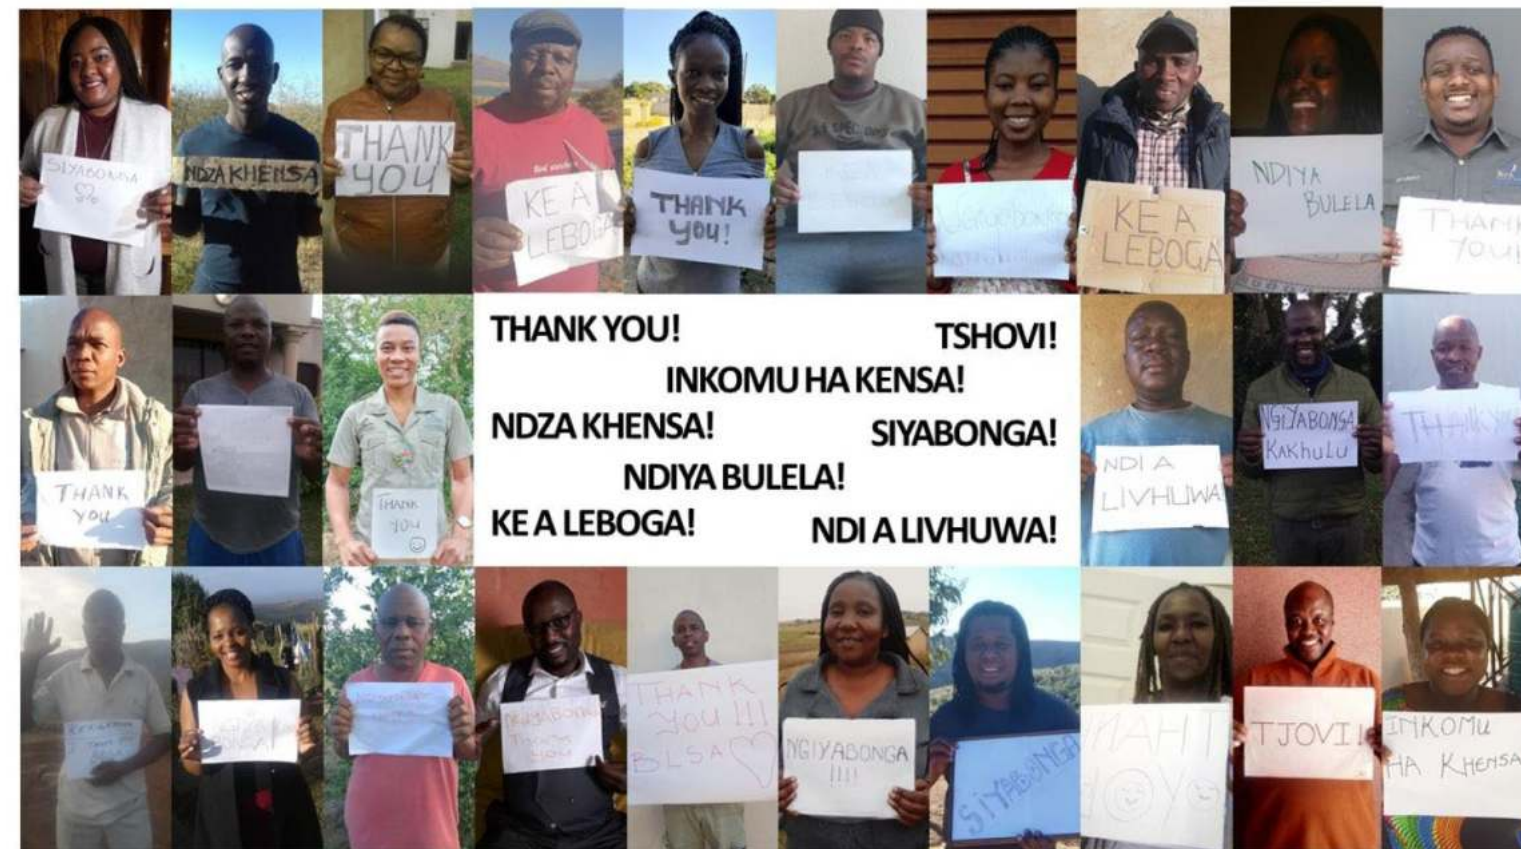 SIYABONGA
NDZA KHENSA
THANK
YOU
KE A
LEBOGA
THANK
YOU!
KE A
LEBOGA
NDIYA
BULELA
THANK
YOU!
THANK
YOU
THANK
YOU
THANK YOU!
TSHOVI!
INKOMU HA KENSA!
NDZA KHENSA!
SIYABONGA!
NDIYA BULELA!
KE A LEBOGA!
NDI A LIVHUWA!
NDI A
LIVHUWA
NGIYABONGA
KAKHULU
THANK YOU
THANK
YOU
THANK
YOU !!!
BLSA
NGIYABONGA
!!!!
SIYABONGA
TJOVI!
INKOMU
HA KHENSA